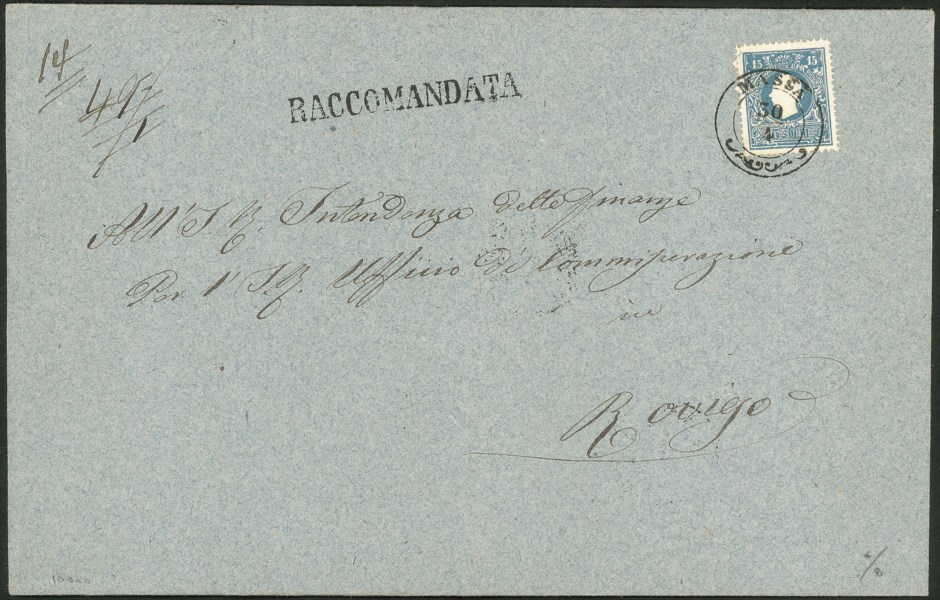 14
497/1
RACCOMANDATA
15 15
15 SOLDI
MASSA
30
4
All' I. R. Intendenza delle finanze
Per l' I. R. Ufficio di Commisurazione
in
Rovigo